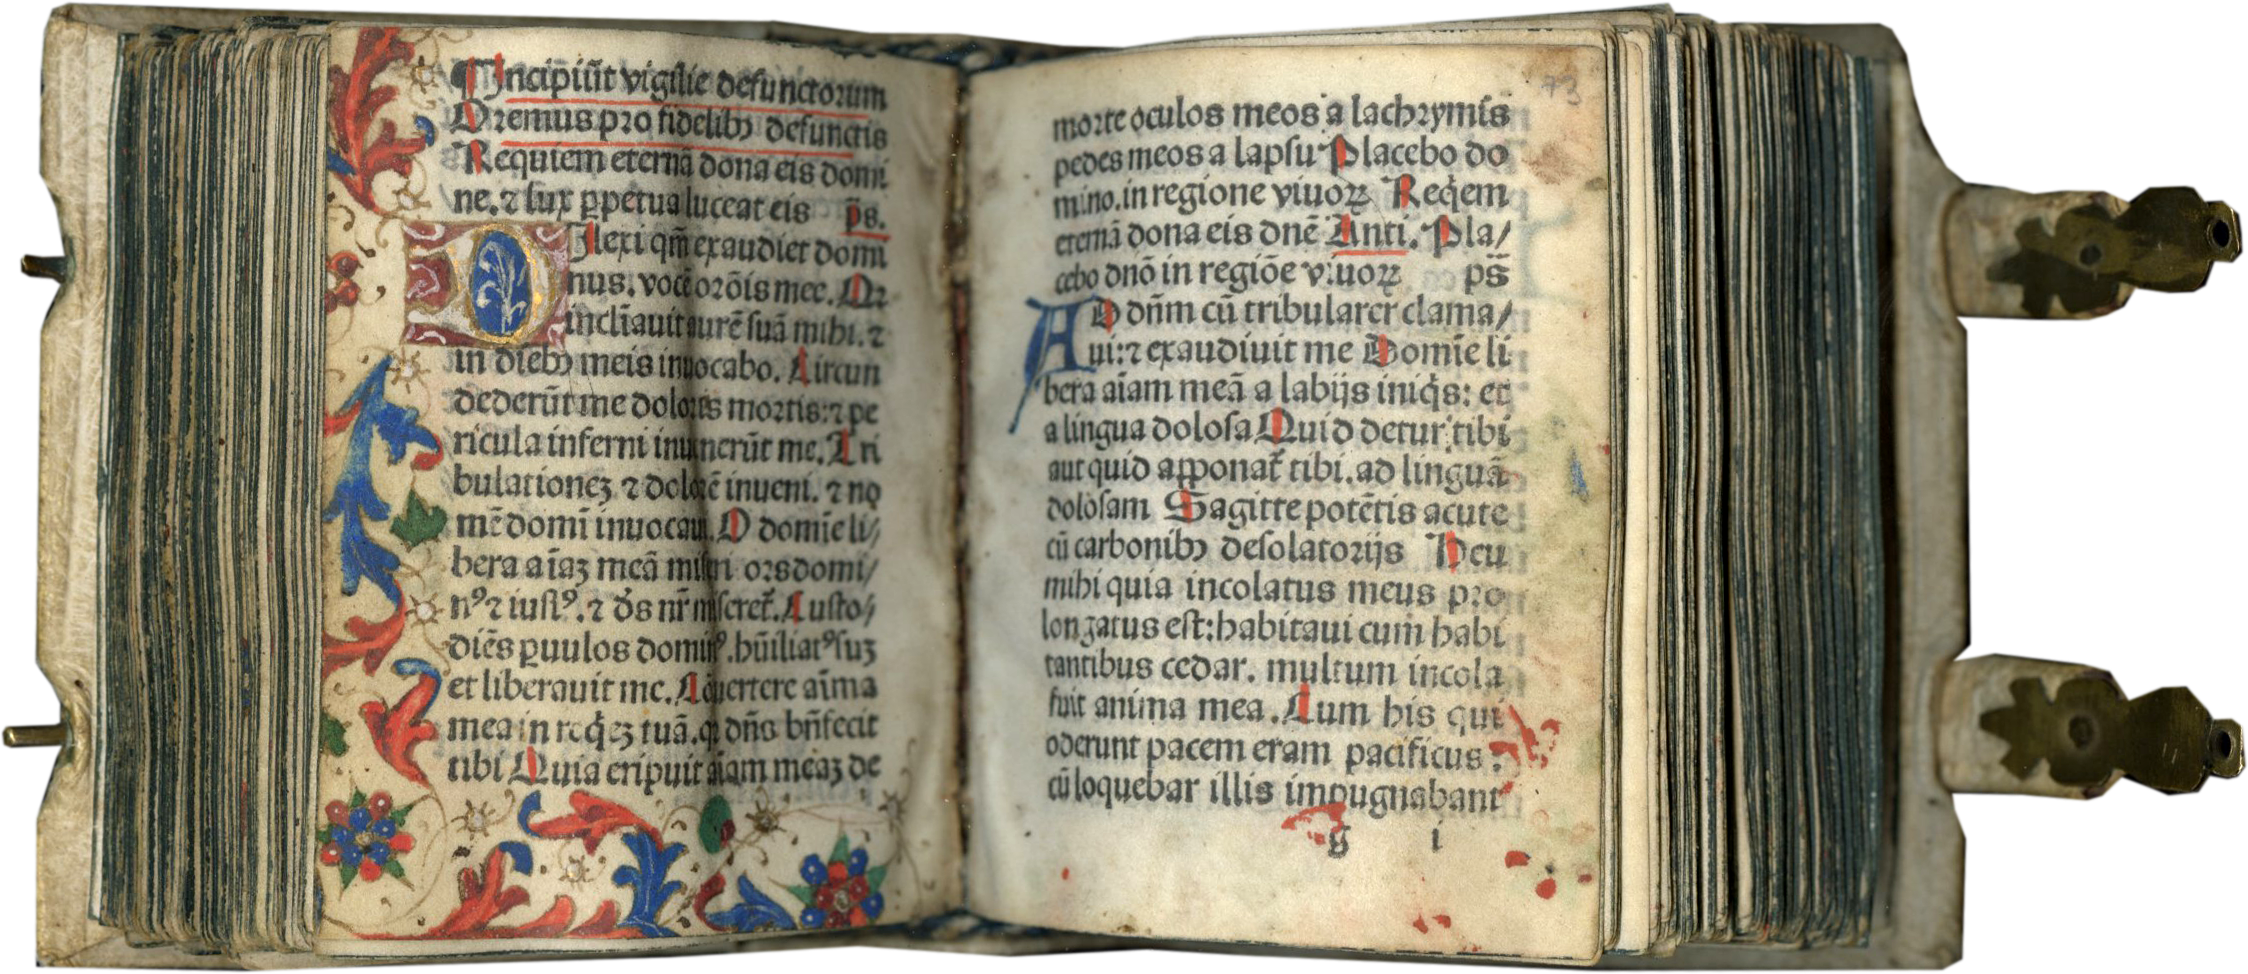 ¶ Incipiūt vigilie defunctorum
Oremus pro fidelibꝫ defunctis
Requiem eternā dona eis domi
ne. ⁊ lux ꝑpetua luceat eis p̄s.
Dilexi qm̄ exaudiet domi
nus. vocē or̄ōis mee. Qr
in̄cliauit aurē suā mihi. ⁊
in diebꝫ meis inuocabo. Circun
dederūt me dolores mortis: ⁊ pe
ricula inferni inuenerūt me. Tri
bulationeꝫ ⁊ dolorē inueni. ⁊ no
mē domi inuocaui. O domie li/
bera aīaꝫ meā misri ors domi/
nꝰ ⁊ iustꝰ. ⁊ d̄s nr̄ miseret̄. Custo/
diēs ꝑuulos dominꝰ. hūiliatꝰ suꝫ
et liberauit me. Cōuertere aīma
mea in reqͥeꝫ tuā. qꝛ dn̄s bn̄fecit
tibi Quia eripuit aīam meaꝫ de
73
morte oculos meos a lachrymis
pedes meos a lapsu Placebo do
mino. in regione viuoꝝ Reqͥem
eternā dona eis dn̄ē Anti. Pla/
cebo dn̄ō in regiōe viuoꝝ ps̄
AD dn̄m cū tribularer clama/
ui: ⁊ exaudiuit me Domīe li
bera aīam meā a labijs iniqͥs: et
a lingua dolosa Quid detur tibi
aut quid apponat̄ tibi. ad linguā
dolosam Sagitte potētis acute
cū carbonibꝫ desolatorijs Heu
mihi quia incolatus meus pro
longatus est: habitaui cum habi
tantibus cedar. multum incola
fuit anima mea. Cum his qui
oderunt pacem eram pacificus:
cū loquebar illis impugnabant
g i